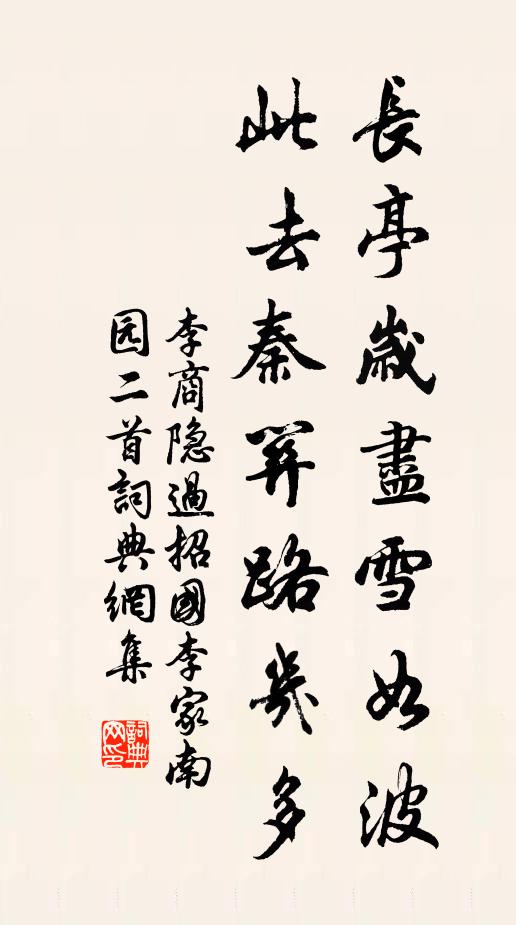 長亭歲盡雪如波
此去秦關路幾多
李商隐過招國李家南
园二首詞典網集
詞典
网印